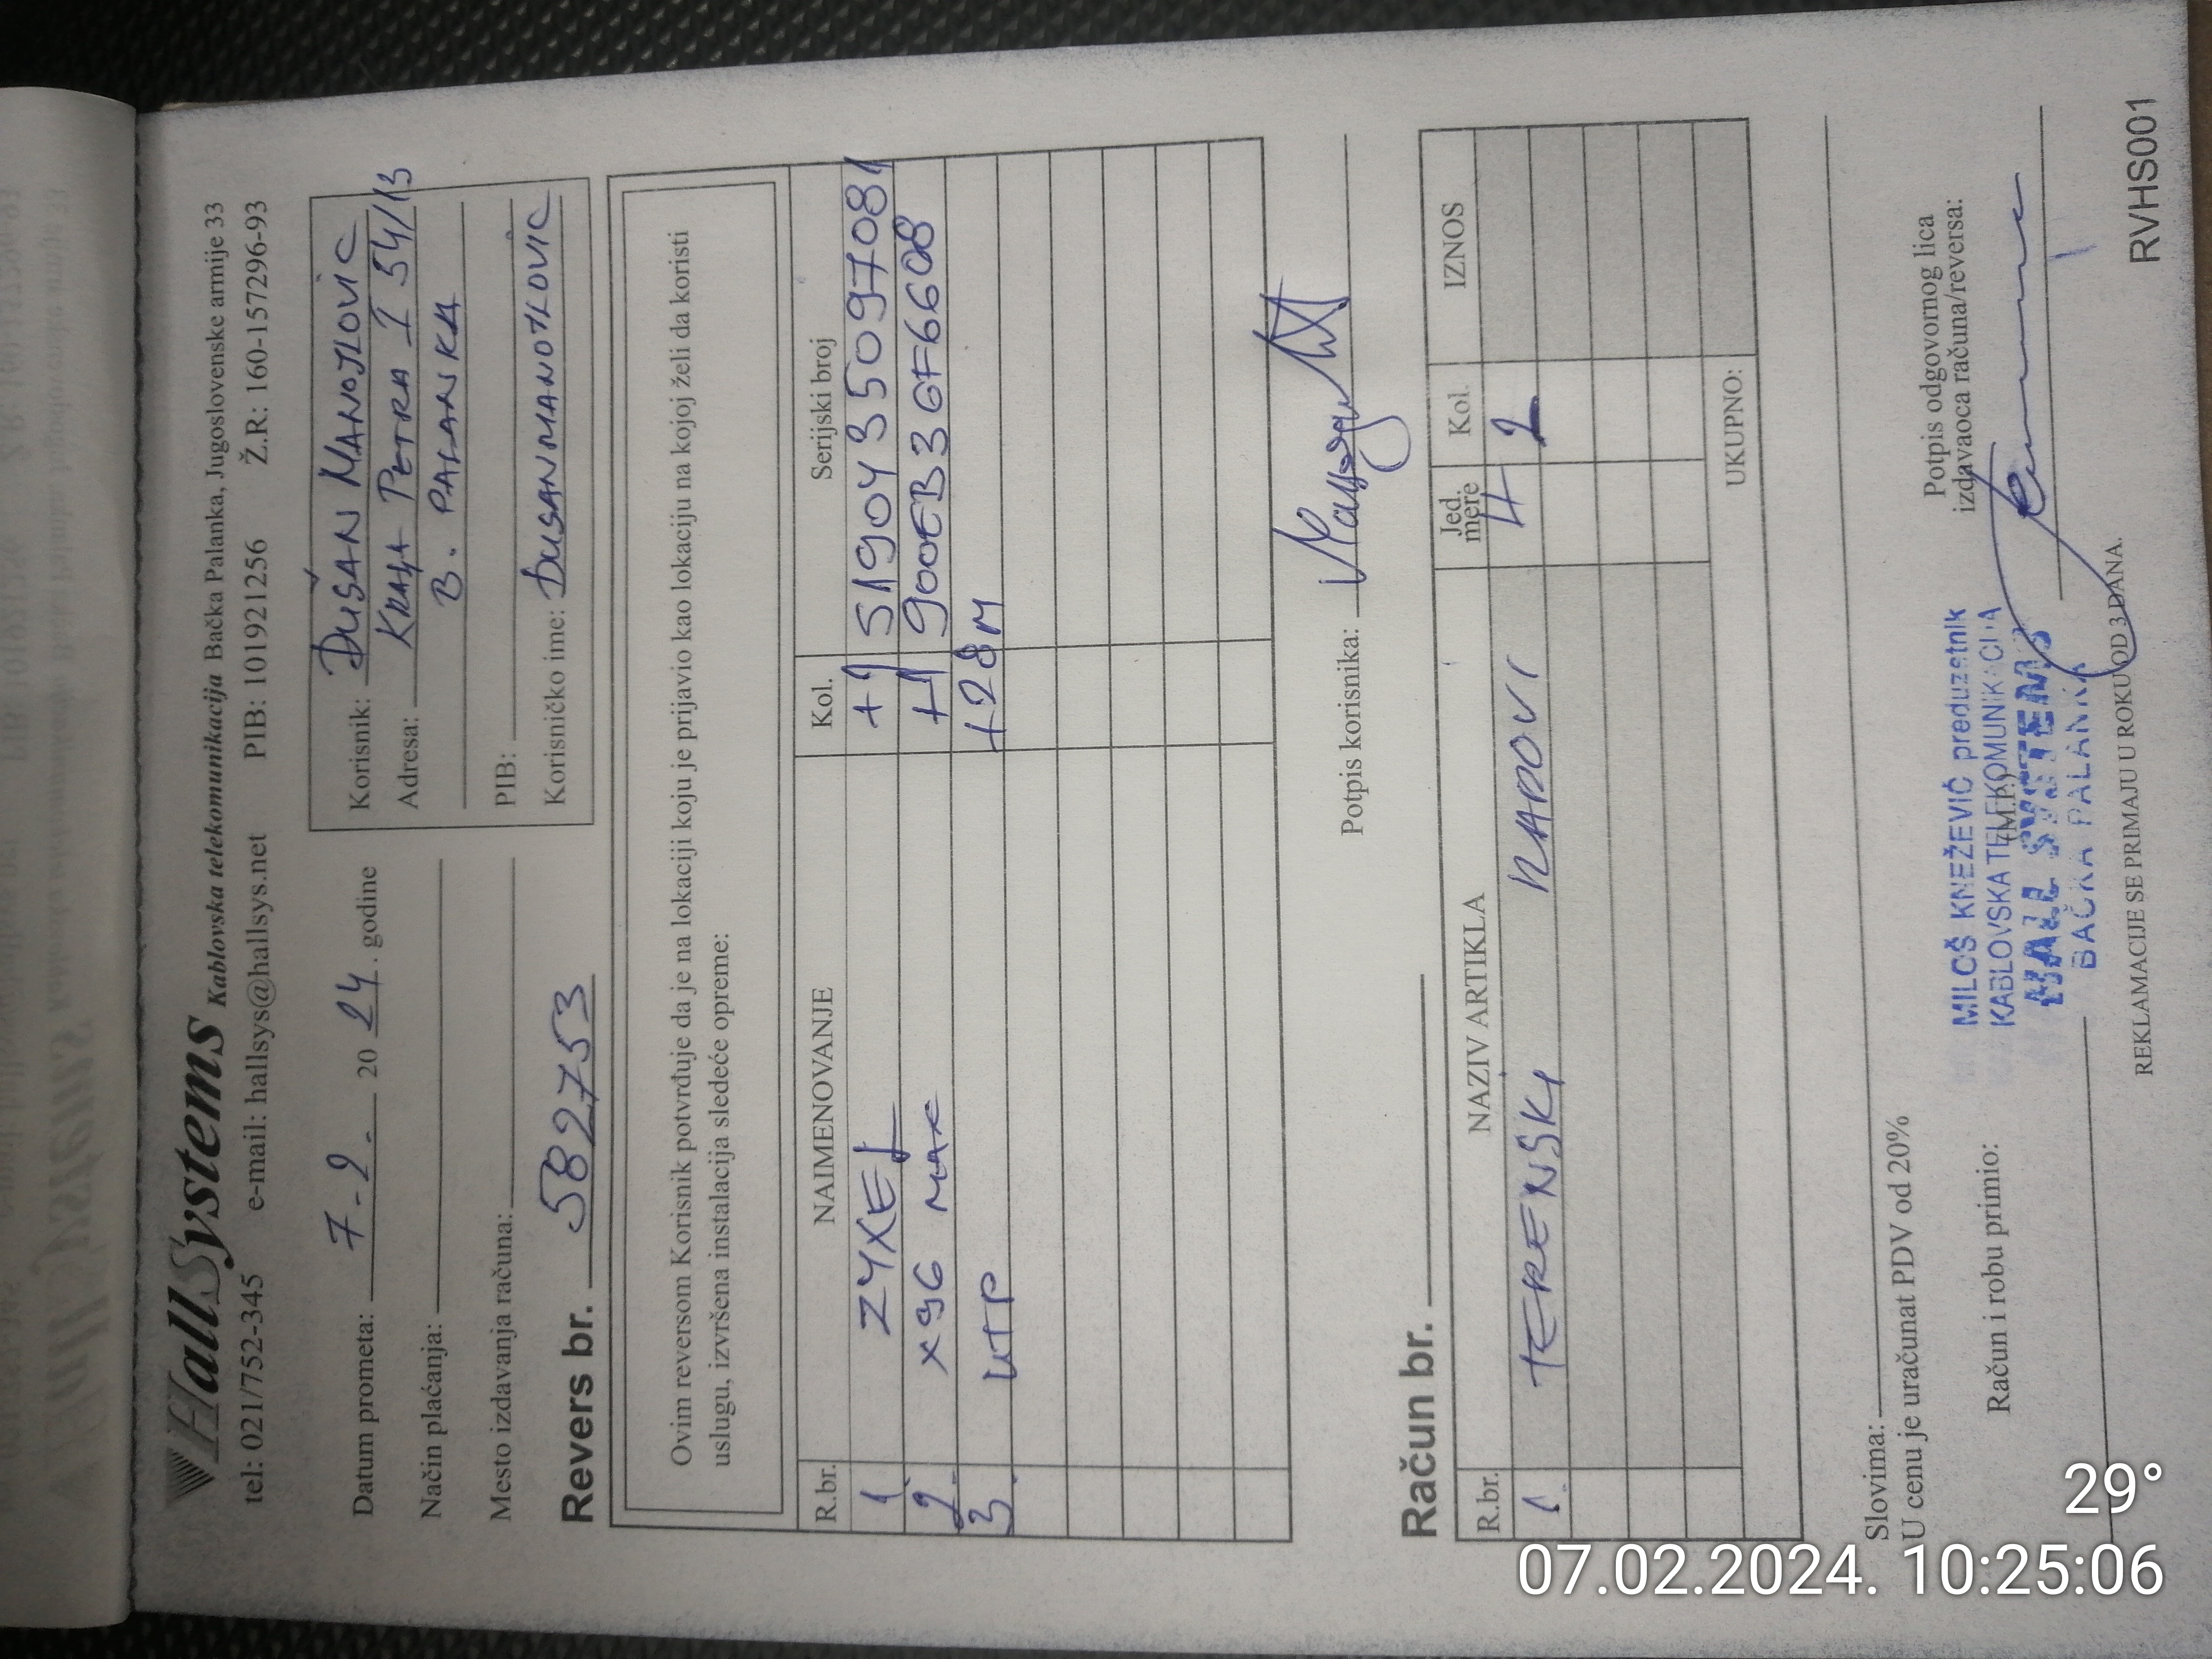 HallSystems Kablovska telekomunikacija Bačka Palanka, Jugoslovenske armije 33
tel: 021/752-345 e-mail: hallsys@hallsys.net PIB: 101921256 Ž.R: 160-157296-93
Datum prometa: 7-2- 20 24. godine
Način plaćanja:
Mesto izdavanja računa:
Korisnik: DUŠAN MANOJLOVIC
Adresa: KRALJA PETRA I 54/13
B. PALANKA
PIB:
Korisničko ime: DUSANMANOJLOVIC
Revers br. 582753
Ovim reversom Korisnik potvrđuje da je na lokaciji koju je prijavio kao lokaciju na kojoj želi da koristi
uslugu, izvršena instalacija sledeće opreme:
R.br. NAIMENOVANJE Kol. Serijski broj
1 ZYXEL +1 S190Y35097081
2. X96 MAX +1 900EB3GF6608
3. UTP +28M
Potpis korisnika:
Račun br.
R.br. NAZIV ARTIKLA Jed. mere Kol. IZNOS
1. TERENSKI RADOVI H 2
UKUPNO:
Slovima:
U cenu je uračunat PDV od 20%
Račun i robu primio:
MILOŠ KNEŽEVIĆ preduzetnik
KABLOVSKA TELEKOMUNIKACIJA
(M.P.)
HALL SYSTEMS
BAČKA PALANKA
Potpis odgovornog lica
izdavaoca računa/reversa:
REKLAMACIJE SE PRIMAJU U ROKU OD 3 DANA.
RVHS001
29°
07.02.2024. 10:25:06